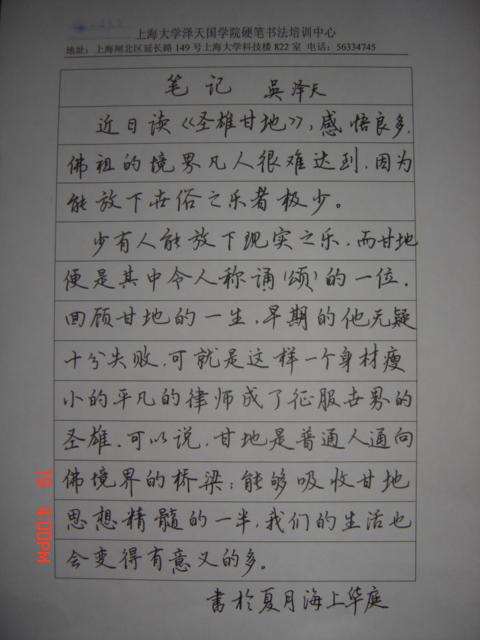 上海大学泽天国学院硬笔书法培训中心
地址：上海闸北区延长路149号上海大学科技楼822室 电话：56334745
笔记 吳泽天
近日读《圣雄甘地》，感悟良多.
佛祖的境界凡人很难达到.因为
能放下世俗之乐者极少。
少有人能放下现实之乐.而甘地
便是其中令人称诵(颂)的一位.
回顾甘地的一生.早期的他无疑
十分失败.可就是这样一个身材瘦
小的平凡的律师成了征服世界的
圣雄.可以说.甘地是普通人通向
佛境界的桥梁；能够吸收甘地
思想精髓的一半.我们的生活也
会变得有意义的多。
書於夏月海上华庭
19 4:00PM